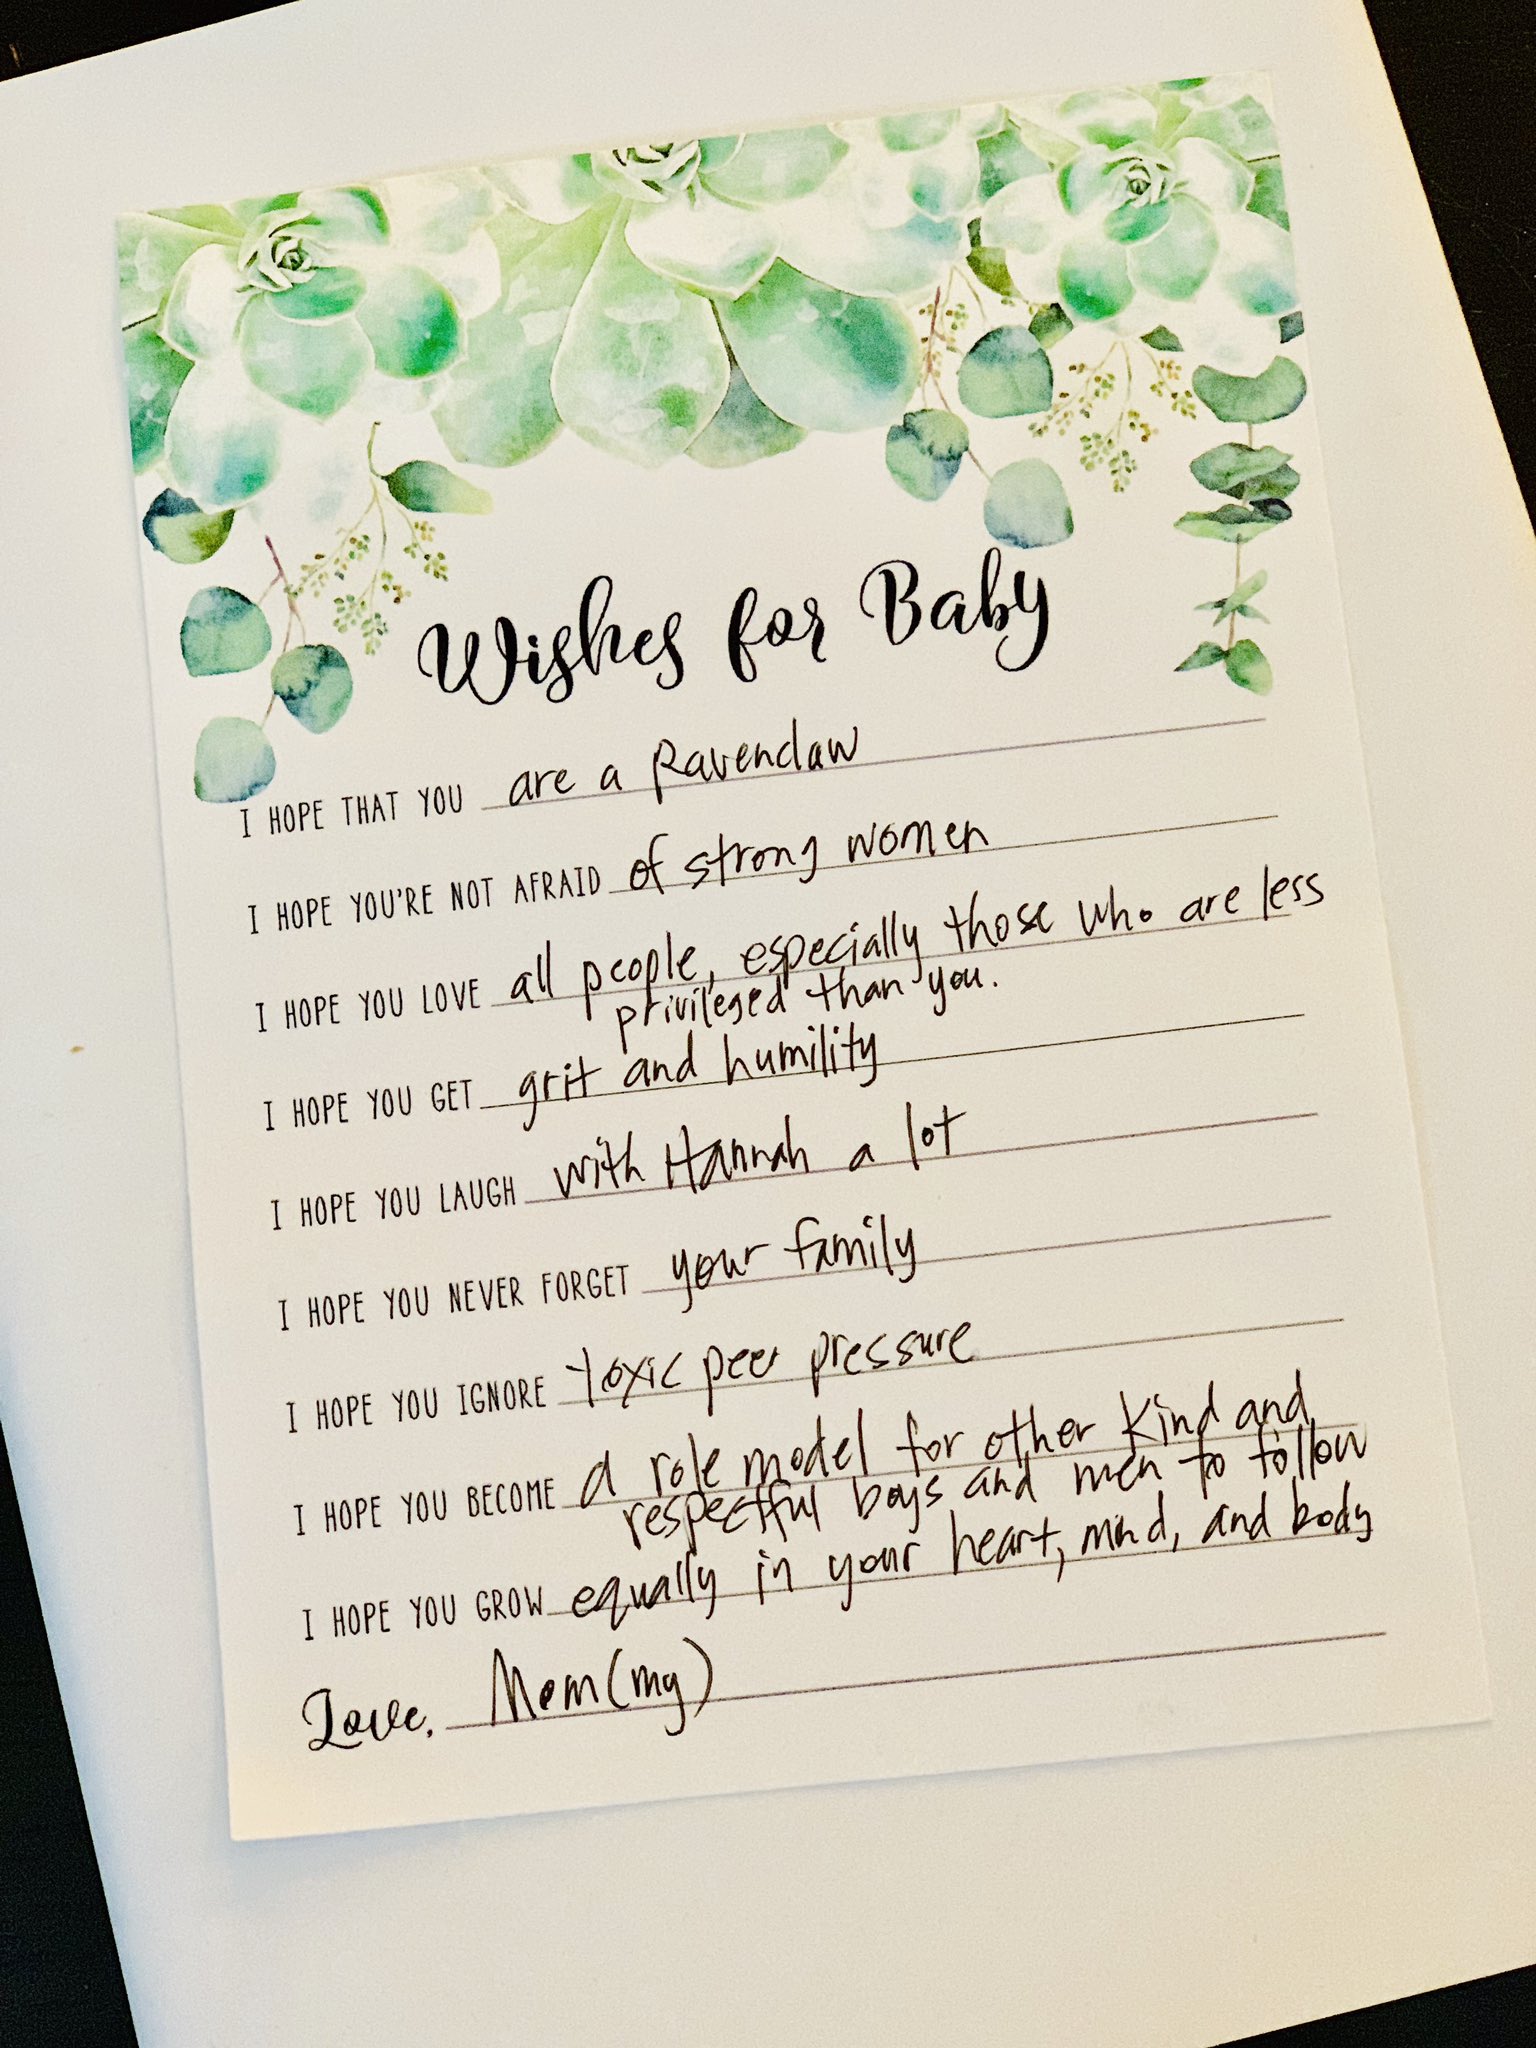 Wishes for Baby
I HOPE THAT YOU are a Ravenclaw
I HOPE YOU'RE NOT AFRAID of strong women
I HOPE YOU LOVE all people, especially those who are less
privileged than you.
I HOPE YOU GET grit and humility
I HOPE YOU LAUGH with Hannah a lot
I HOPE YOU NEVER FORGET your family
I HOPE YOU IGNORE toxic peer pressure
I HOPE YOU BECOME a role model for other kind and
respectful boys and men to follow
I HOPE YOU GROW equally in your heart, mind, and body
Love, Mom(my)